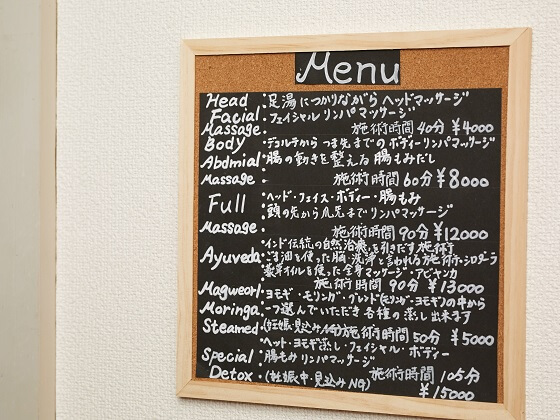 Menu
Head :足湯につかりながらヘッドマッサージ
Facial :フェイシャルリンパマッサージ
Massage. 施術時間40分 ¥4000
Body :デコルテからつま先までのボディーリンパマッサージ
Abdmial :腸の動きを整える腸もみだし
Massage : 施術時間60分 ¥8000
Full ヘッド・フェイス・ボディー・腸もみ
:頭の先から爪先までリンパマッサージ
Massage : 施術時間90分 ¥12000
:インド伝統の自然治療を引きだす施術
Ayuveda:ごま油を使った脳洗浄と言われる施術・シロダーラ
薬草オイルを使った全身マッサージ・アビヤンカ
施術時間90分 ¥13000
Magweorl:ヨモギ・モリンガ・ブレンド(モリンガ・ヨモギ)の中から
Moringa:一つ選んでいただき各種の蒸し出来ます
Steamed:(妊娠・見込みNG)施術時間50分 ¥5000
:ヘット・ヨモギ蒸し・フェイシャル・ボディー
Special :腸もみリンパマッサージ
Detox :(妊娠中・見込みNG) 施術時間105分
¥15000